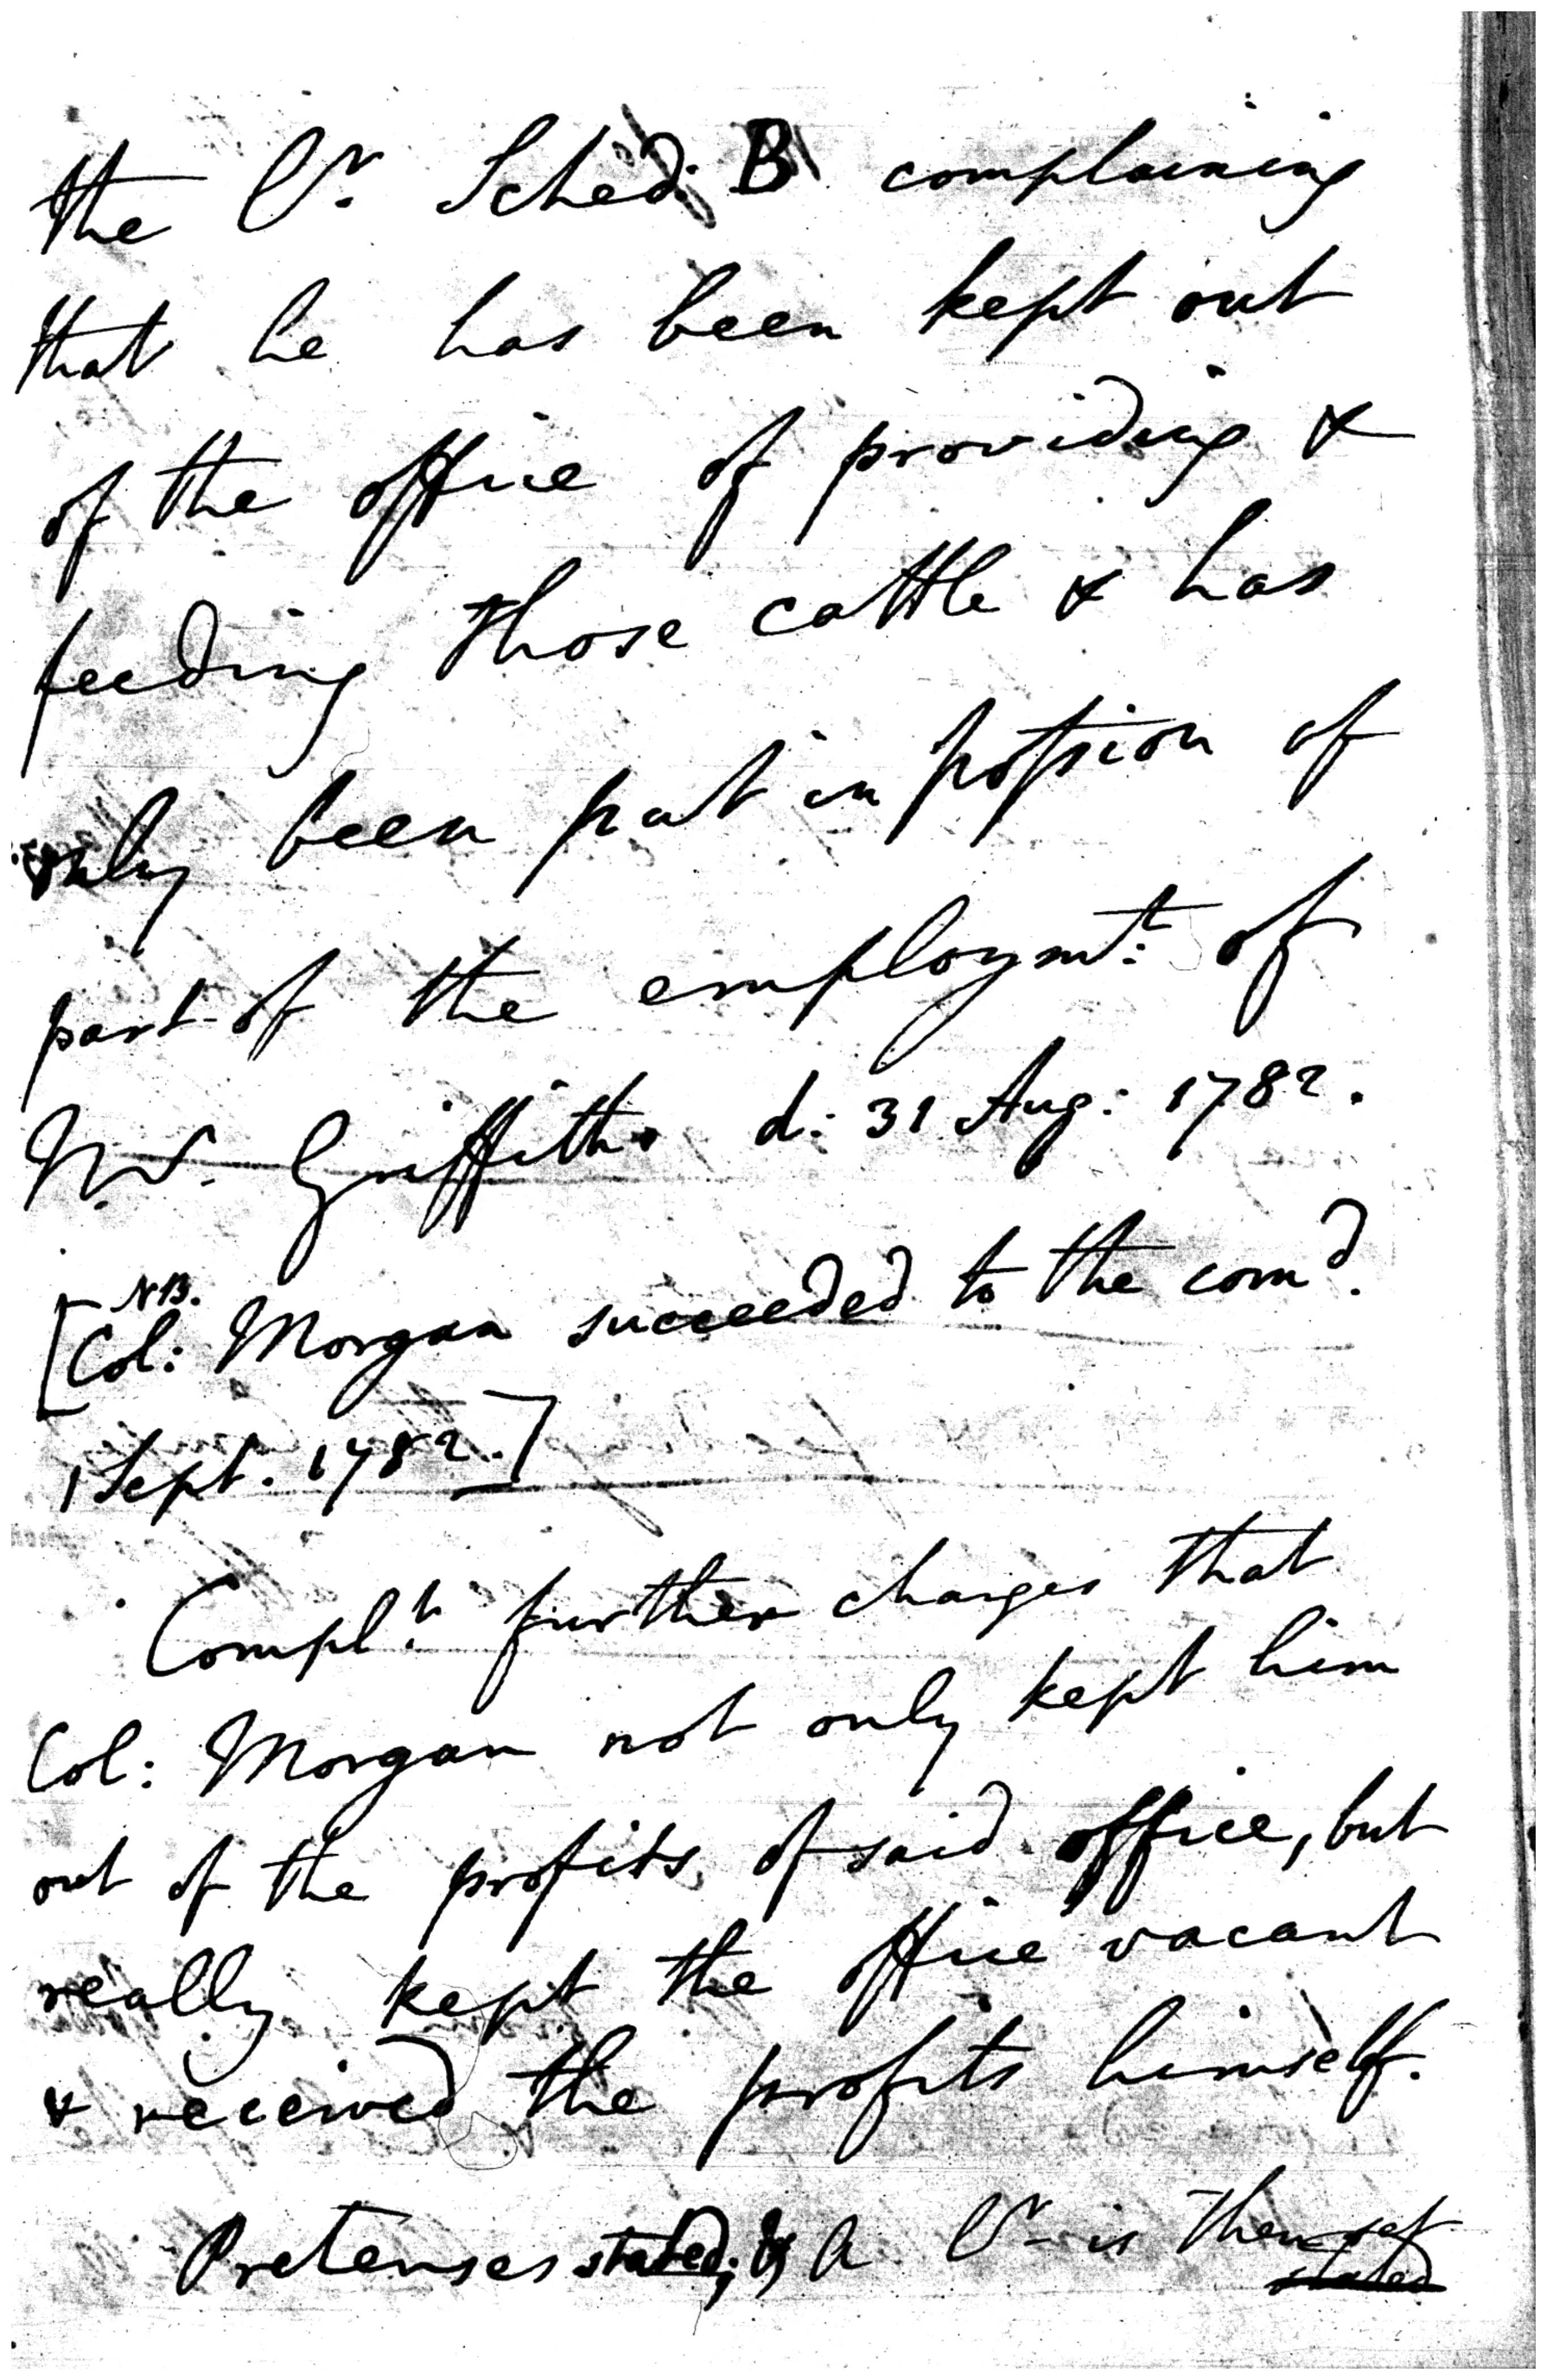 the Lr. Sched: B complaining
that he has been kept out
of the office of providing &
feeding those cattle & has
only been put in possion of
part of the employmt: of
Mr. Griffith d: 31 Aug: 1782.
NB.
[Col: Morgan succeeded to the comd.
1 Sept. 1782.]
Complt. further charges that
Col: Morgan not only kept him
out of the profits of said office, but
really kept the office vacant
& received the profits himself.
Pretenses stated; & a Lr is then set
stated